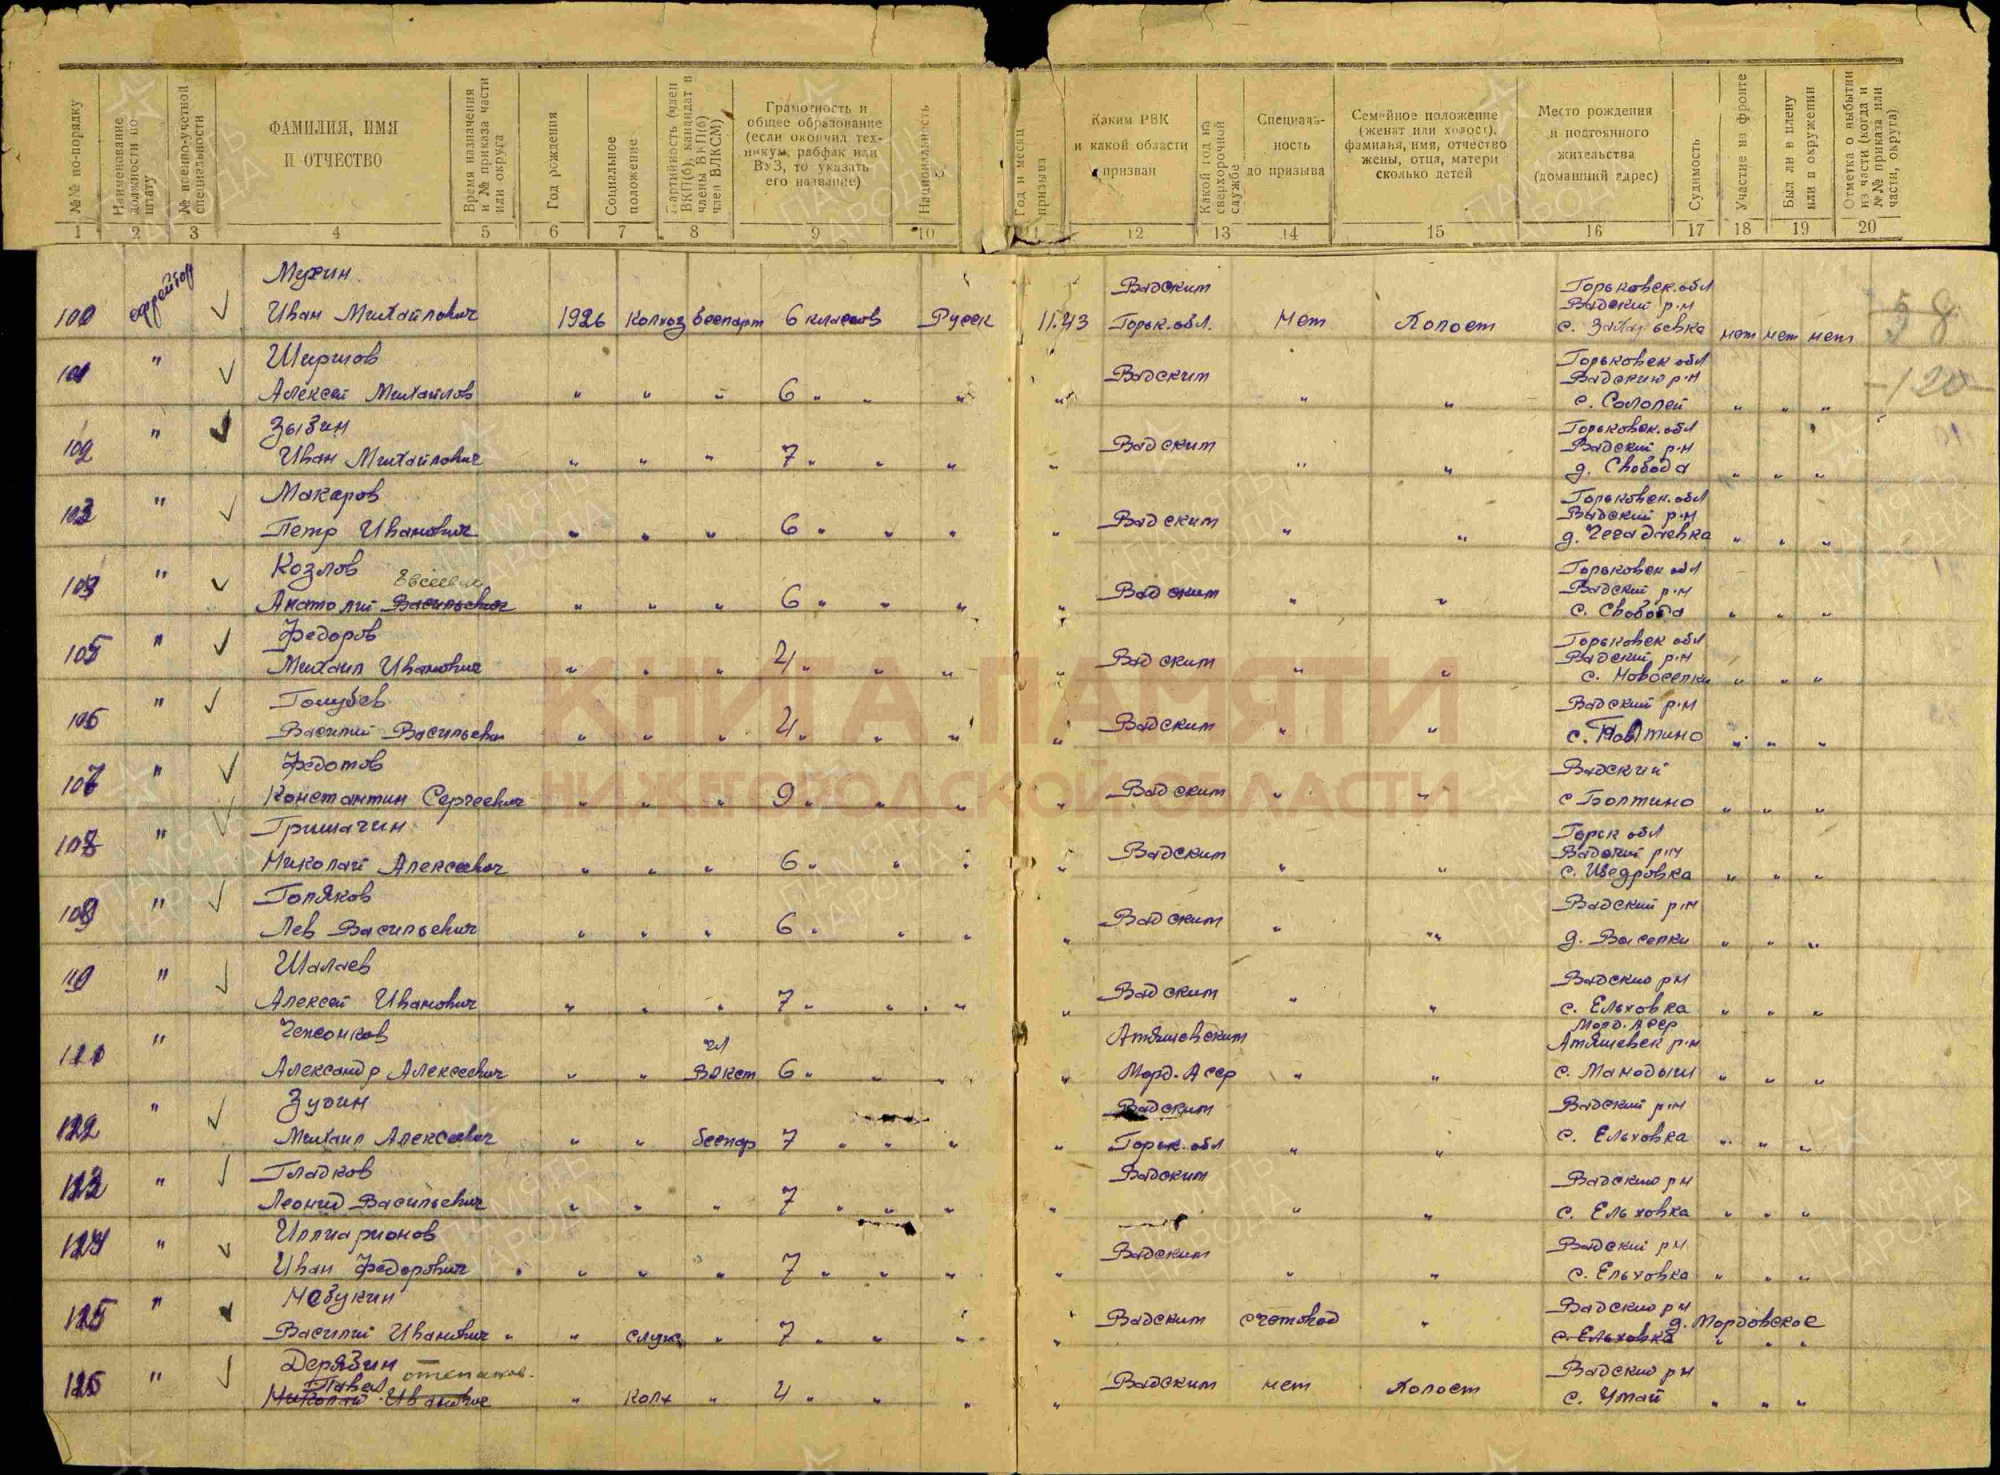 №№ по-порядку
Наименование должности по штату
№ военно-учетной специальности
ФАМИЛИЯ, ИМЯ
И ОТЧЕСТВО
Время назначения и № приказа части или округа
Год рождения
Социальное положение
Партийность (член ВКП(б), кандидат в члены ВКП(б) член ВЛКСМ)
Грамотность и
общее образование
(если окончил тех-
никум, рабфак или
ВУЗ, то указать
его название)
Национальность
Год и месяц призыва
Каким РВК
и какой области
призван
Какой год на сверхсрочной службе
Специаль-
ность
до призыва
Семейное положение
(женат или холост),
фамилия, имя, отчество
жены, отца, матери
сколько детей
Место рождения
и постоянного
жительства
(домашний адрес)
Судимость
Участие на фронте
Был ли в плену или в окружении
Отметка о выбытии из части (когда и № № приказа или части, округа)
1 2 3 4 5 6 7 8 9 10 11 12 13 14 15 16 17 18 19 20
Мухин Вадским Горьковск. обл
100 ефрейтор Иван Михайлович 1926 Колхоз беспарт 6 классов Русск 11.43 Горьк. обл. Нет Холост Вадский р-н
нет нет нет 58
Ширшов Вадским Горьковск обл
Вадский р-н
101 " Алексей Михайлов " " " 6 " " " " " " с. Салолей " " " -120-
Зызин Вадским Горьковск. обл
Вадский р-н
102 " Иван Михайлович " " " 7 " " " " " " д. Свобода " " "
Макаров Вадским Горьковск. обл
Вадский р-н
103 " Петр Иванович " " " 6 " " " " " " " " "
Козлов Евсеевич Вадским Горьковск обл
Вадский р-н
" Анатолий Васильевич " " " 6 " " " " " " с. Свобода " " "
Федоров Вадским Горьковск обл
Вадский р-н
105 " Михаил Иванович " " " 4 " " " " " " с. Новоселки " " "
Голубев Вадским Вадский р-н
106 " Василий Васильевич " " " 4 " " " " " " " " "
Федотов Вадским Вадский
107 " Константин Сергеевич " " " 9 " " " " " " с Болтино " " "
Гришачин Вадским Горьк обл
Вадский р-н
108 " Николай Алексеевич " " " 6 " " " " " " с. Щедровка " " "
Голяков Вадским Вадский р-н
109 " Лев Васильевич " " " 6 " " " " " " д. Выселки " " "
Шалаев Вадским Вадский р-н
110 " Алексей Иванович " " " 7 " " " " " " с. Ельховка " " "
Чеконков Атяшевским Морд. Асср
Атяшевск р-н
111 " Александр Алексеевич " " чл Влксм 6 " " " " Морд. Асср " " " " "
Зубин Вадским Вадский р-н
" Михаил Алексеевич " " беспар 7 " " " " Горьк. обл " " с. Ельховка " " "
Гладков Вадским Вадский р-н
" Леонид Васильевич " " " 7 " " " " " " с. Ельховка " " "
Иллиарионов Вадским Вадский р-н
" Иван Федорович " " " 7 " " " " " " с. Ельховка " " "
Вадский р-н
" Василий Иванович " " служ " 7 " " " " Вадским счетовод " с. Ельховка д. Мордовское " " "
Дерябин Степанов. Вадский р-н
Павел
" Николай Иванович " колх " 4 " " " " Вадским нет Холост с. Умай " " "
КНИГА ПАМЯТИ
НИЖЕГОРОДСКОЙ ОБЛАСТИ
ПАМЯТЬ
НАРОДА